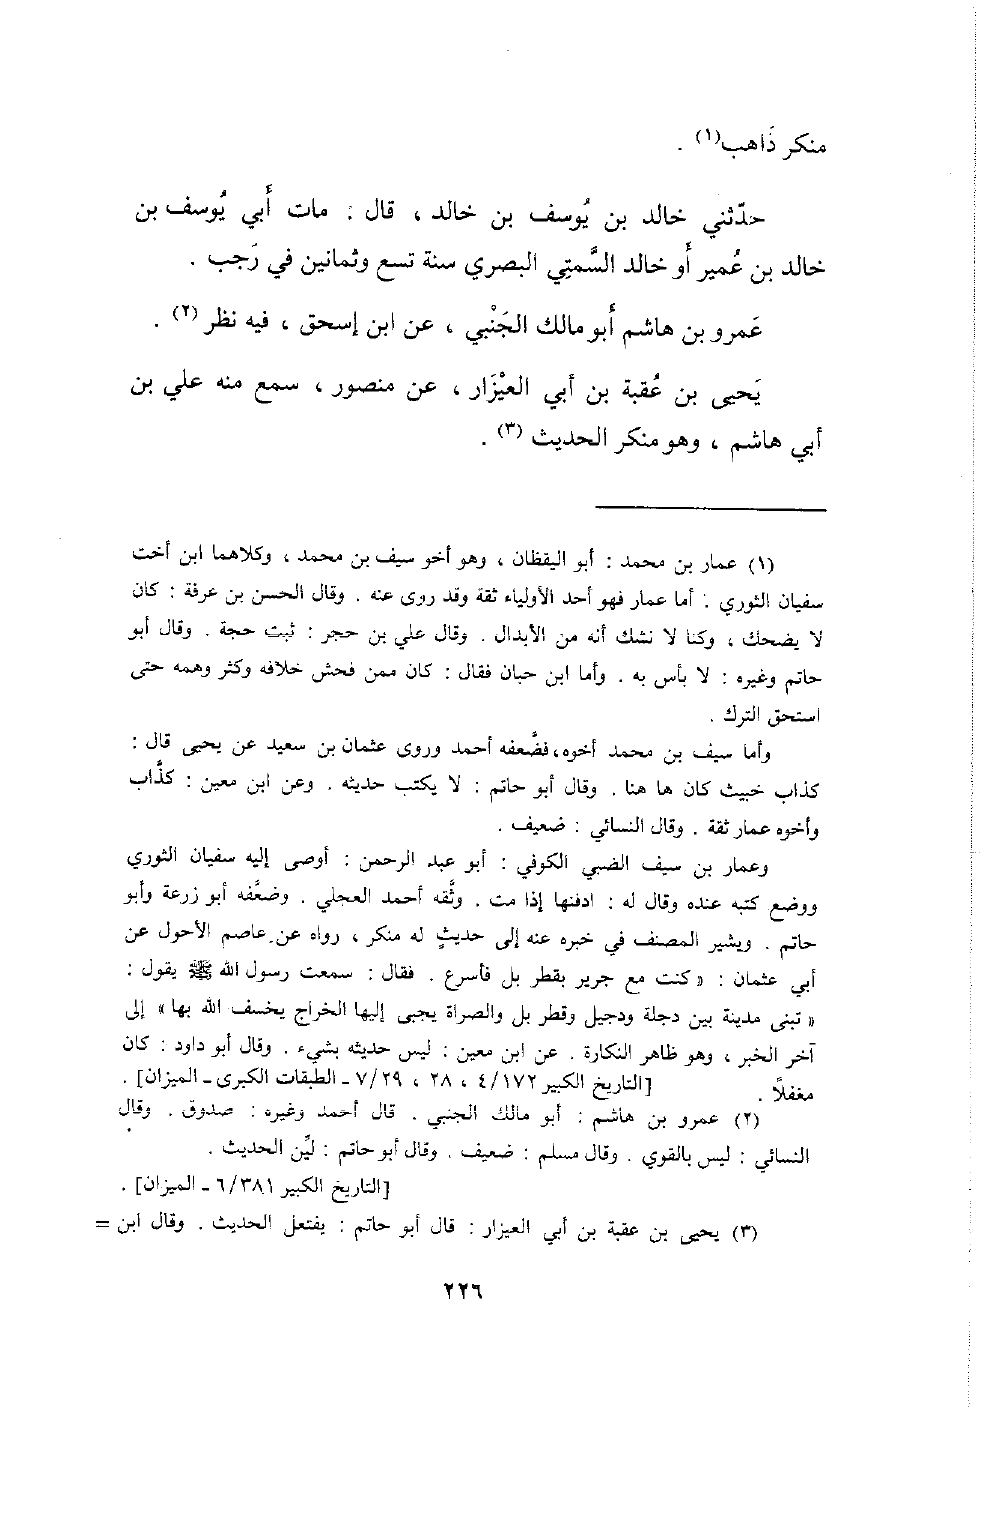 منكر ذَاهب(١) .
حدّثني خالد بن يُوسف بن خالد ، قال : مات أَبي يُوسف بن
خالد بن عُمير أَو خالد السَّمتِي البصري سنة تسع وثمانين في رَجب .
عَمرو بن هاشم أَبو مالك الجَنْبي ، عن ابن إسحق ، فيه نظر (٢) .
يَحيى بن عُقبة بن أبي العيْزَار ، عن منصور ، سمع منه علي بن
أبي هاشم ، وهو منكر الحديث (٣) .
(١) عمار بن محمد : أبو اليقظان ، وهو أخو سيف بن محمد ، وكلاهما ابن أخت
سفيان الثوري : أما عمار فهو أحد الأولياء ثقة وقد روى عنه . وقال الحسن بن عرفة : كان
لا يضحك ، وكنا لا نشك أنه من الأبدال . وقال علي بن حجر : ثبت حجة . وقال أبو
حاتم وغيره : لا بأس به . وأما ابن حبان فقال : كان ممن فحش خلافه وكثر وهمه حتى
استحق الترك .
وأما سيف بن محمد أخوه، فضَّعفه أحمد وروى عثمان بن سعيد عن يحيى قال :
كذاب خبيث كان ها هنا . وقال أبو حاتم : لا يكتب حديثه . وعن ابن معين : كذَّاب
وأخوه عمار ثقة . وقال النسائي : ضعيف .
وعمار بن سيف الضبي الكوفي : أبو عبد الرحمن : أوصى إليه سفيان الثوري
ووضع كتبه عنده وقال له : ادفنها إذا مت . وثَّقه أحمد العجلي . وضعَّفه أبو زرعة وأبو
حاتم . ويشير المصنف في خبره عنه إلى حديثٍ له منكر ، رواه عن عاصم الأحول عن
أبي عثمان : « كنت مع جرير بقطر بل فأسرع . فقال : سمعت رسول الله ﷺ يقول :
« تبنى مدينة بين دجلة ودجيل وقطر بل والصراة يجبى إليها الخراج يخسف الله بها » إلى
آخر الخبر ، وهو ظاهر النكارة . عن ابن معين : ليس حديثه بشيء . وقال أبو داود : كان
مغفلاً . [التاريخ الكبير ٤/١٧٢ ، ٢٨ ، ٧/٢٩ ـ الطبقات الكبرى ـ الميزان] .
(٢) عمرو بن هاشم : أبو مالك الجنبي . قال أحمد وغيره : صدوق . وقال
النسائي : ليس بالقوي . وقال مسلم : ضعيف . وقال أبو حاتم : ليِّن الحديث .
[التاريخ الكبير ٦/٣٨١ ـ الميزان] .
(٣) يحيى بن عقبة بن أبي العيزار : قال أبو حاتم : يفتعل الحديث . وقال ابن =
٢٢٦